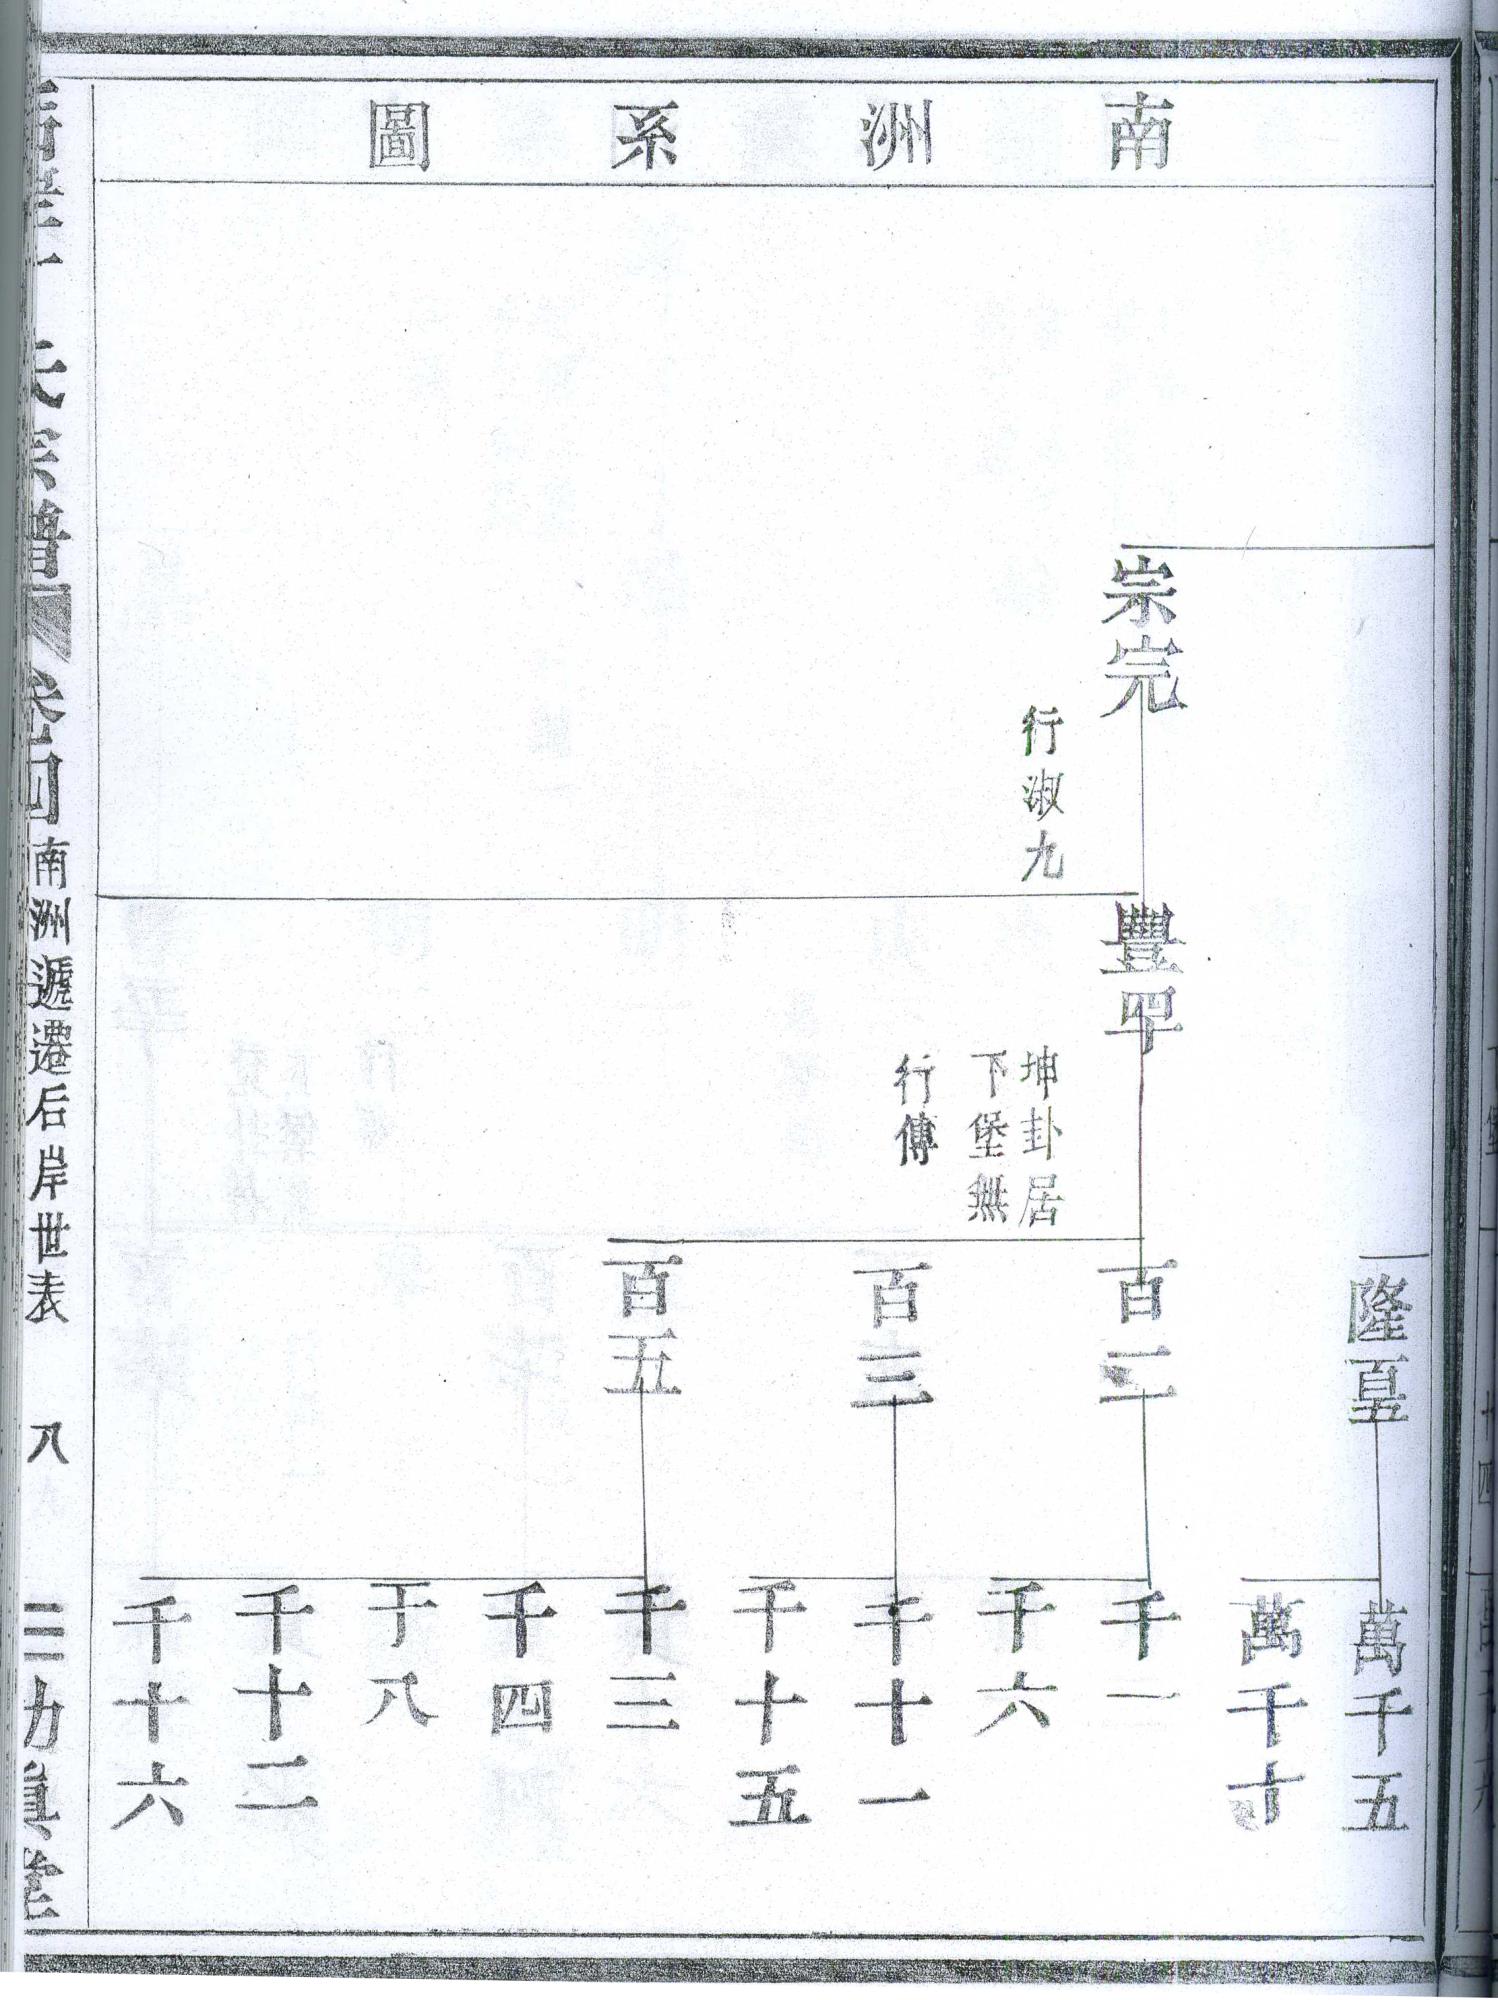 南洲系圖
隆夏
萬千五
萬千十
崇完
行淑九
豐甲
坤卦居
下堡無
行傳
百二
百三
百五
千一
千六
千十一
千十五
千三
千四
于八
千十二
千十六
氏宗譜
卷四
南洲遞遷后岸世表
八